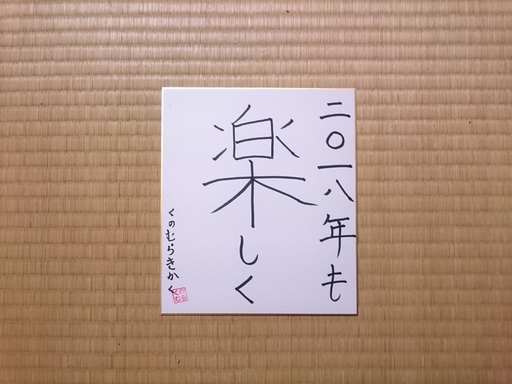 二〇一八年も
楽しく
くのむらきかく